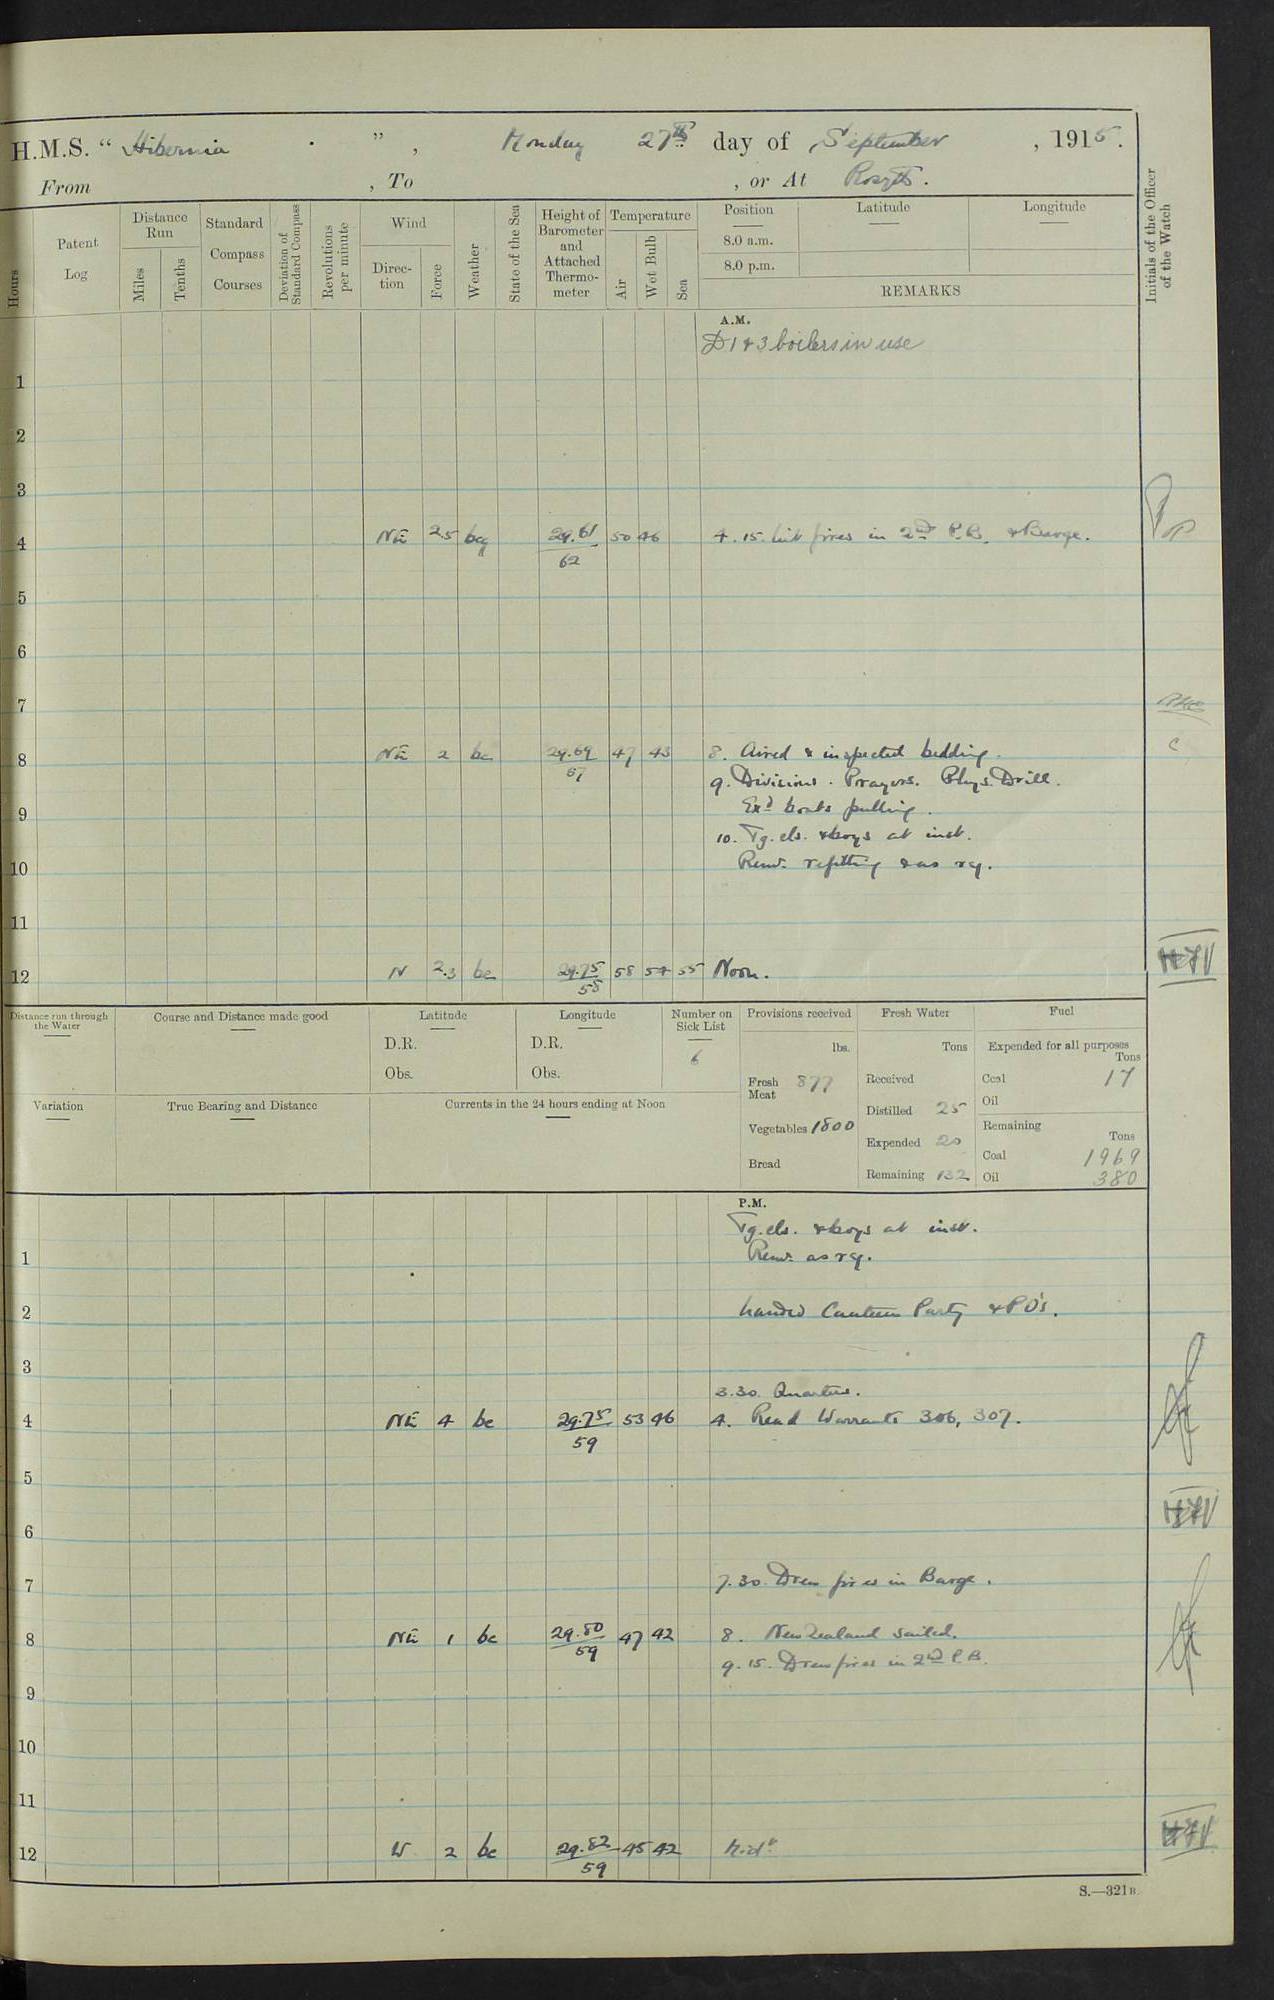 H.M.S. “ Hibernia ”, Monday 27th day of September, 1915.
From , To , or At Rosyth.
Hours
Patent Log
Distance Run
Miles
Tenths
Standard Compass Courses
Deviation of Standard Compass
Revolutions per minute
Wind
Direction
Force
Weather
State of the Sea
Height of Barometer and Attached Thermometer
Temperature
Air
Wet Bulb
Sea
Position
8.0 a.m.
8.0 p.m.
Latitude
Longitude
REMARKS
Initials of the Officer of the Watch
A.M.
D 1 & 3 boilers in use
1
2
3
4 NE 2.5 bcq 29.61/62 50 46 4.15. Lit fires in 2nd P.B. & Barge.
5
6
7
8 NE 2 bc 29.69/57 47 43 8. Aired & inspected bedding.
9. Divisions. Prayers. Phys. Drill.
9 Exd boats pulling.
10. Tg. cls. & boys at inst.
10 Remr refitting & as rq.
11
12 N 2.3 bc 29.75/58 58 54 55 Noon.
Distance run through the Water
Course and Distance made good
Latitude
D.R.
Obs.
Longitude
D.R.
Obs.
Number on Sick List
6
Provisions received
lbs.
Fresh Meat 877
Vegetables 1800
Bread
Fresh Water
Tons
Received
Distilled 25
Expended 20
Remaining 132
Fuel
Expended for all purposes
Tons
Coal 17
Oil
Remaining
Tons
Coal 1969
Oil 380
Variation
True Bearing and Distance
Currents in the 24 hours ending at Noon
P.M.
Tg. cls. & boys at inst.
1 Remr as rq.
2 Landed Canteen Party & P.O's.
3
3.30. Quarters.
4 NE 4 bc 29.75/59 53 46 4. Read Warrants 306, 307.
5
6
7 7.30. Drew fires in Barge.
8 NE 1 bc 29.80/59 47 42 8. New Zealand sailed.
9.15. Drew fires in 2nd P.B.
9
10
11
12 W 2 bc 29.82/59 45 42 Midt
S.—321B